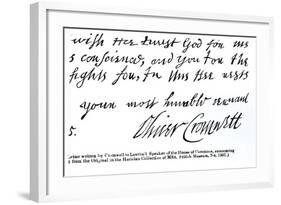 with Her trust God for his
s conscience, and you for the
fights for, In this Her rests
your most humble servant
5. Oliver Cromwell
Letter written by Cromwell to Lenthall, Speaker of the House of Commons, announcing
from the Original in the Harleian Collection of MSS. British Museum, No. 7502.)